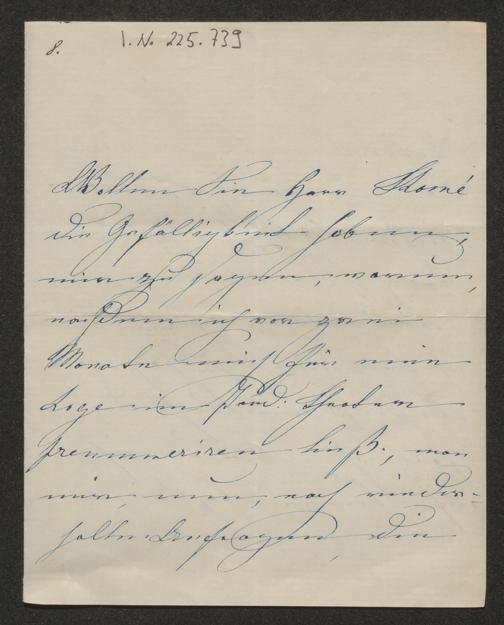 8.
I.N. 225.739
Wollen Sie Herr Salomé
die Gefälligkeit haben,
mir zu sagen, warum,
nachdem ich vor zwei
Monate mich für eine
Loge im Stad: Theater
prenumeriren ließ, man
mir, nun, nach wieder-
holten Anfragen, die